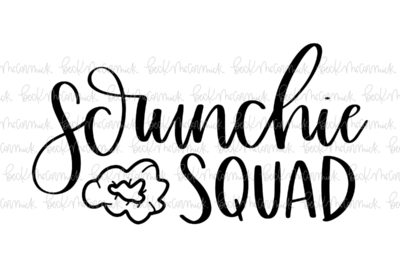 Scrunchie
SQUAD